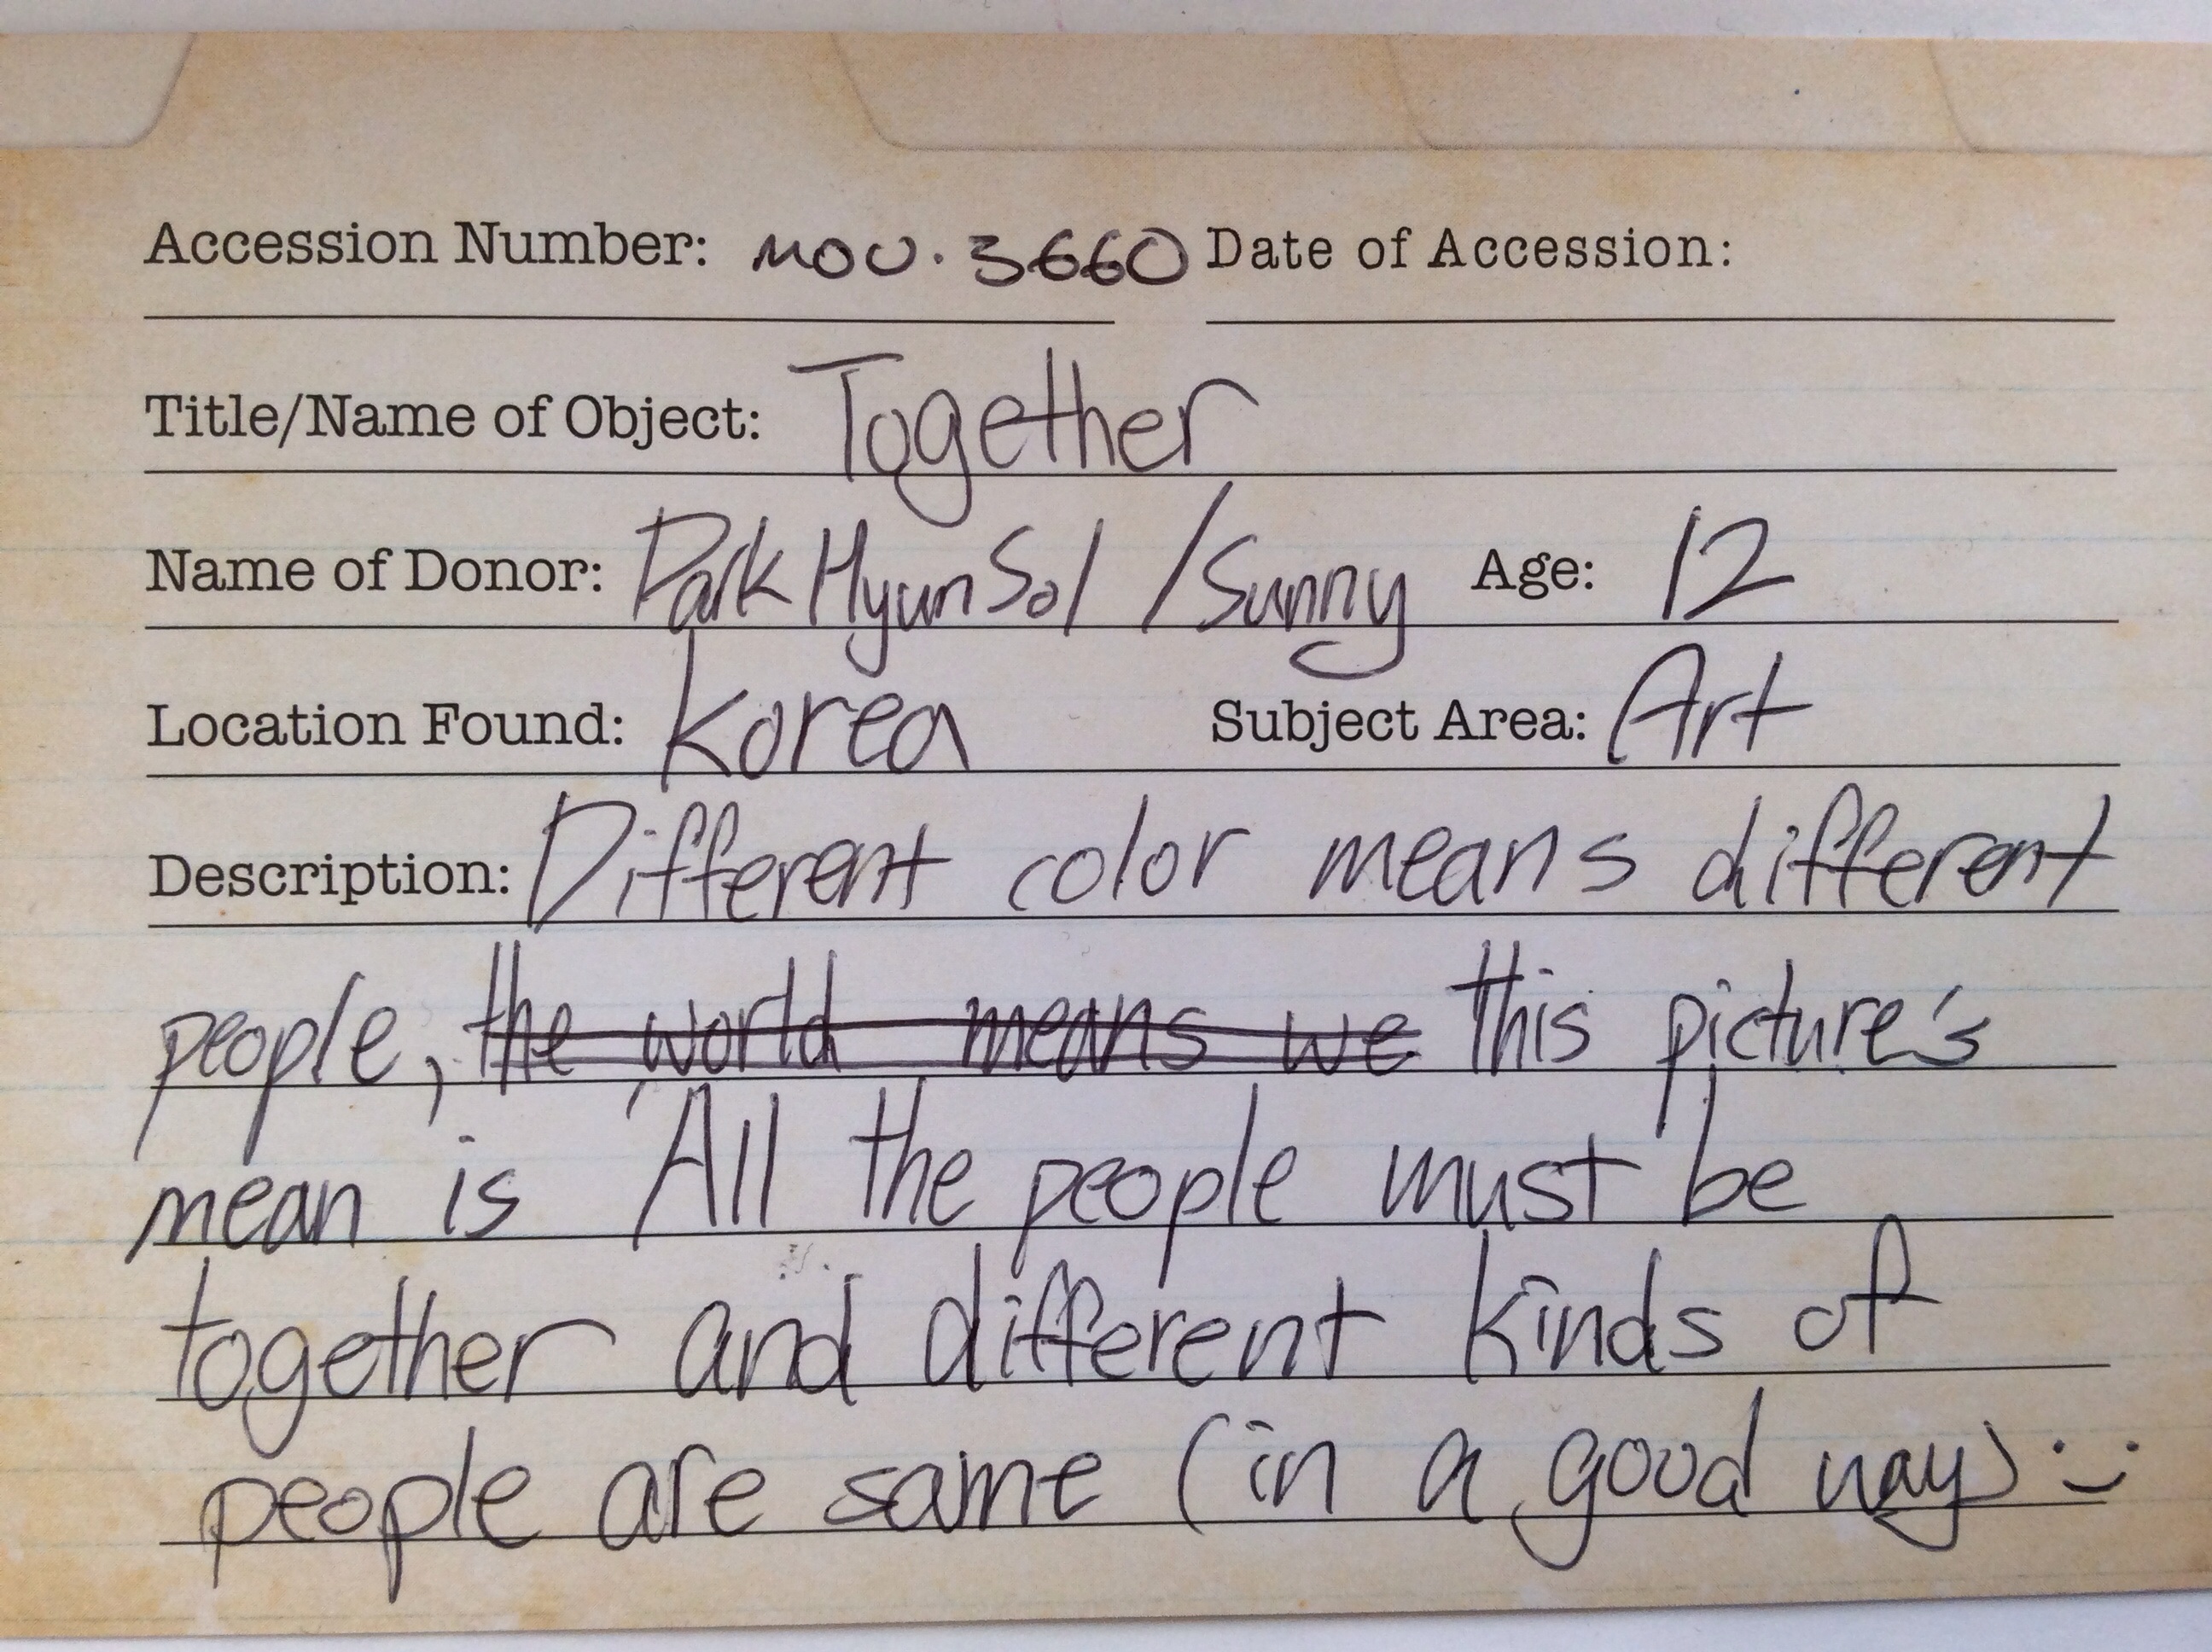 Accession Number: MOU.3660 Date of Accession:
Title/Name of Object: Together
Name of Donor: Park Hyun Sol /Sunny Age: 12
Location Found: Korea Subject Area: Art
Description: Different color means different
people, the world means we this picture's
mean is 'All the people must be
together and different kinds of
people are same (in a good way) :)